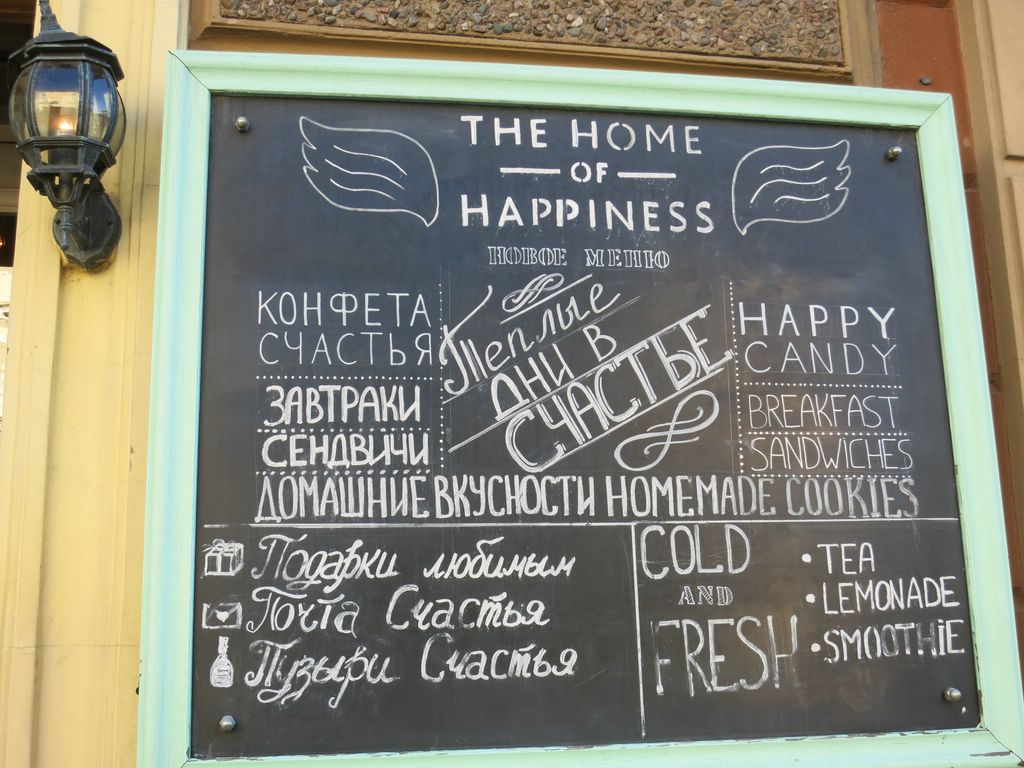 THE HOME
OF
HAPPINESS
НОВОЕ МЕНЮ
КОНФЕТА
СЧАСТЬЯ
ЗАВТРАКИ
СЕНДВИЧИ
Теплые
ДНИ В
СЧАСТЬЕ
HAPPY
CANDY
BREAKFAST
SANDWICHES
ДОМАШНИЕ ВКУСНОСТИ HOMEMADE COOKIES
Подарки любимым
Почта Счастья
Пузыри Счастья
COLD
AND
FRESH
• TEA
• LEMONADE
• SMOOTHIE